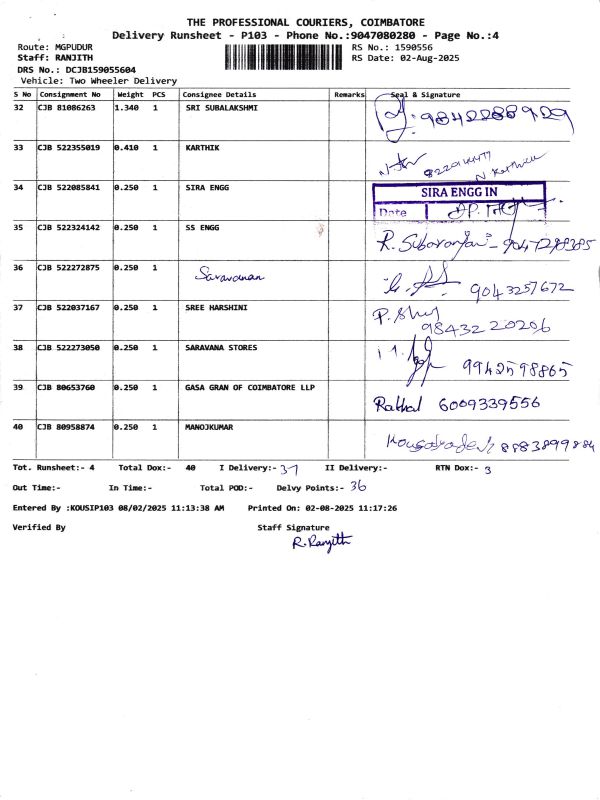 THE PROFESSIONAL COURIERS, COIMBATORE
Delivery Runsheet - P103 - Phone No.:9047080280 - Page No.:4
Route: MGPUDUR RS No.: 1590556
Staff: RANJITH RS Date: 02-Aug-2025
DRS No.: DCJB159055604
Vehicle: Two Wheeler Delivery
S No Consignment No Weight PCS Consignee Details Remarks Seal & Signature
32 CJB 81086263 1.340 1 SRI SUBALAKSHMI 9842288929
33 CJB 522355019 0.410 1 KARTHIK
N Karthik
34 CJB 522085841 0.250 1 SIRA ENGG SIRA ENGG IN
Date
35 CJB 522324142 0.250 1 SS ENGG R. Subaranjani - 9047298385
36 CJB 522272875 0.250 1 Saravanan 9043257672
37 CJB 522037167 0.250 1 SREE HARSHINI
98432 20206
38 CJB 522273050 0.250 1 SARAVANA STORES 9942598865
39 CJB 80653760 0.250 1 GASA GRAN OF COIMBATORE LLP Rahhal 6009339556
40 CJB 80958874 0.250 1 MANOJKUMAR 8883899884
Tot. Runsheet:- 4 Total Dox:- 40 I Delivery:- 37 II Delivery:- RTN Dox:- 3
Out Time:- In Time:- Total POD:- Delvy Points:- 36
Entered By :KOUSIP103 08/02/2025 11:13:38 AM Printed On: 02-08-2025 11:17:26
Verified By Staff Signature
R. Ranjith